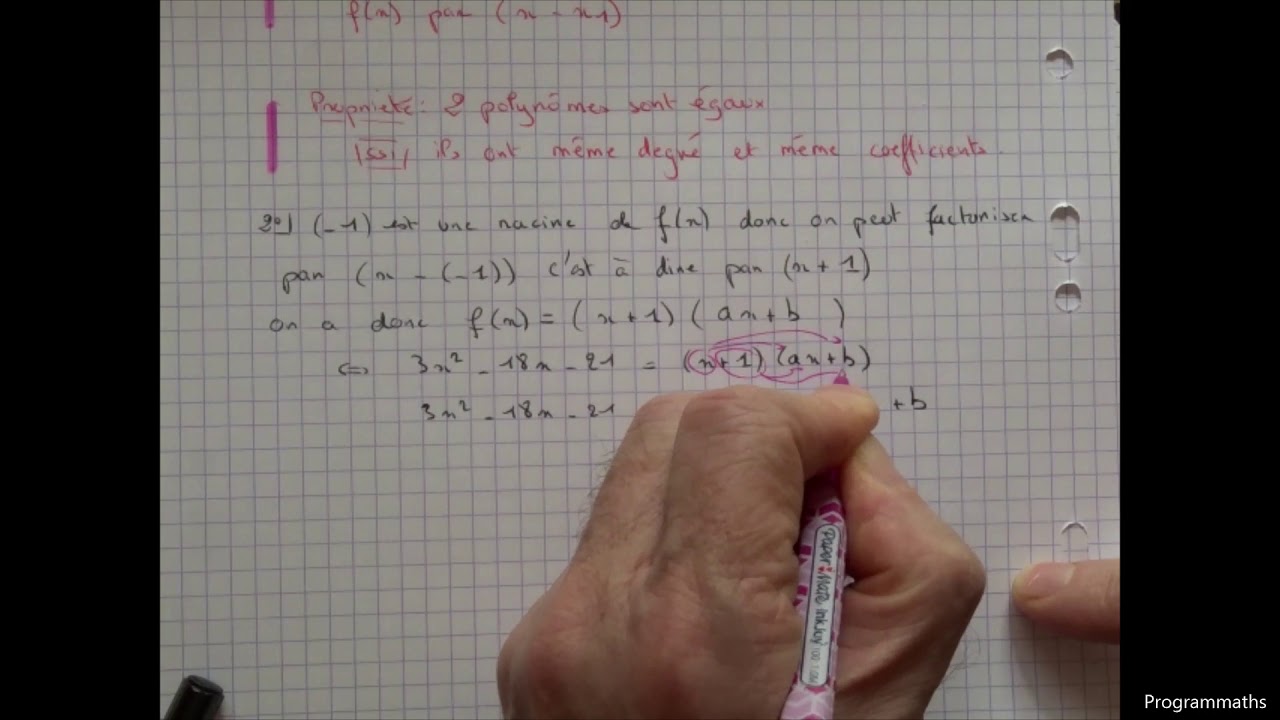 f(x) par (x - x1)
Propriété : 2 polynômes sont égaux
ssi, ils ont même degré et même coefficients.
2°] (-1) est une racine de f(x) donc on peut factoriser
par (x - (-1)) c'est à dire par (x + 1)
on a donc f(x) = (x+1) ( ax+b )
<=> 3x² - 18x - 21 = (x+1) (ax+b)
3x² - 18x - 21 +b
Paper Mate InkJoy 100
Programmaths